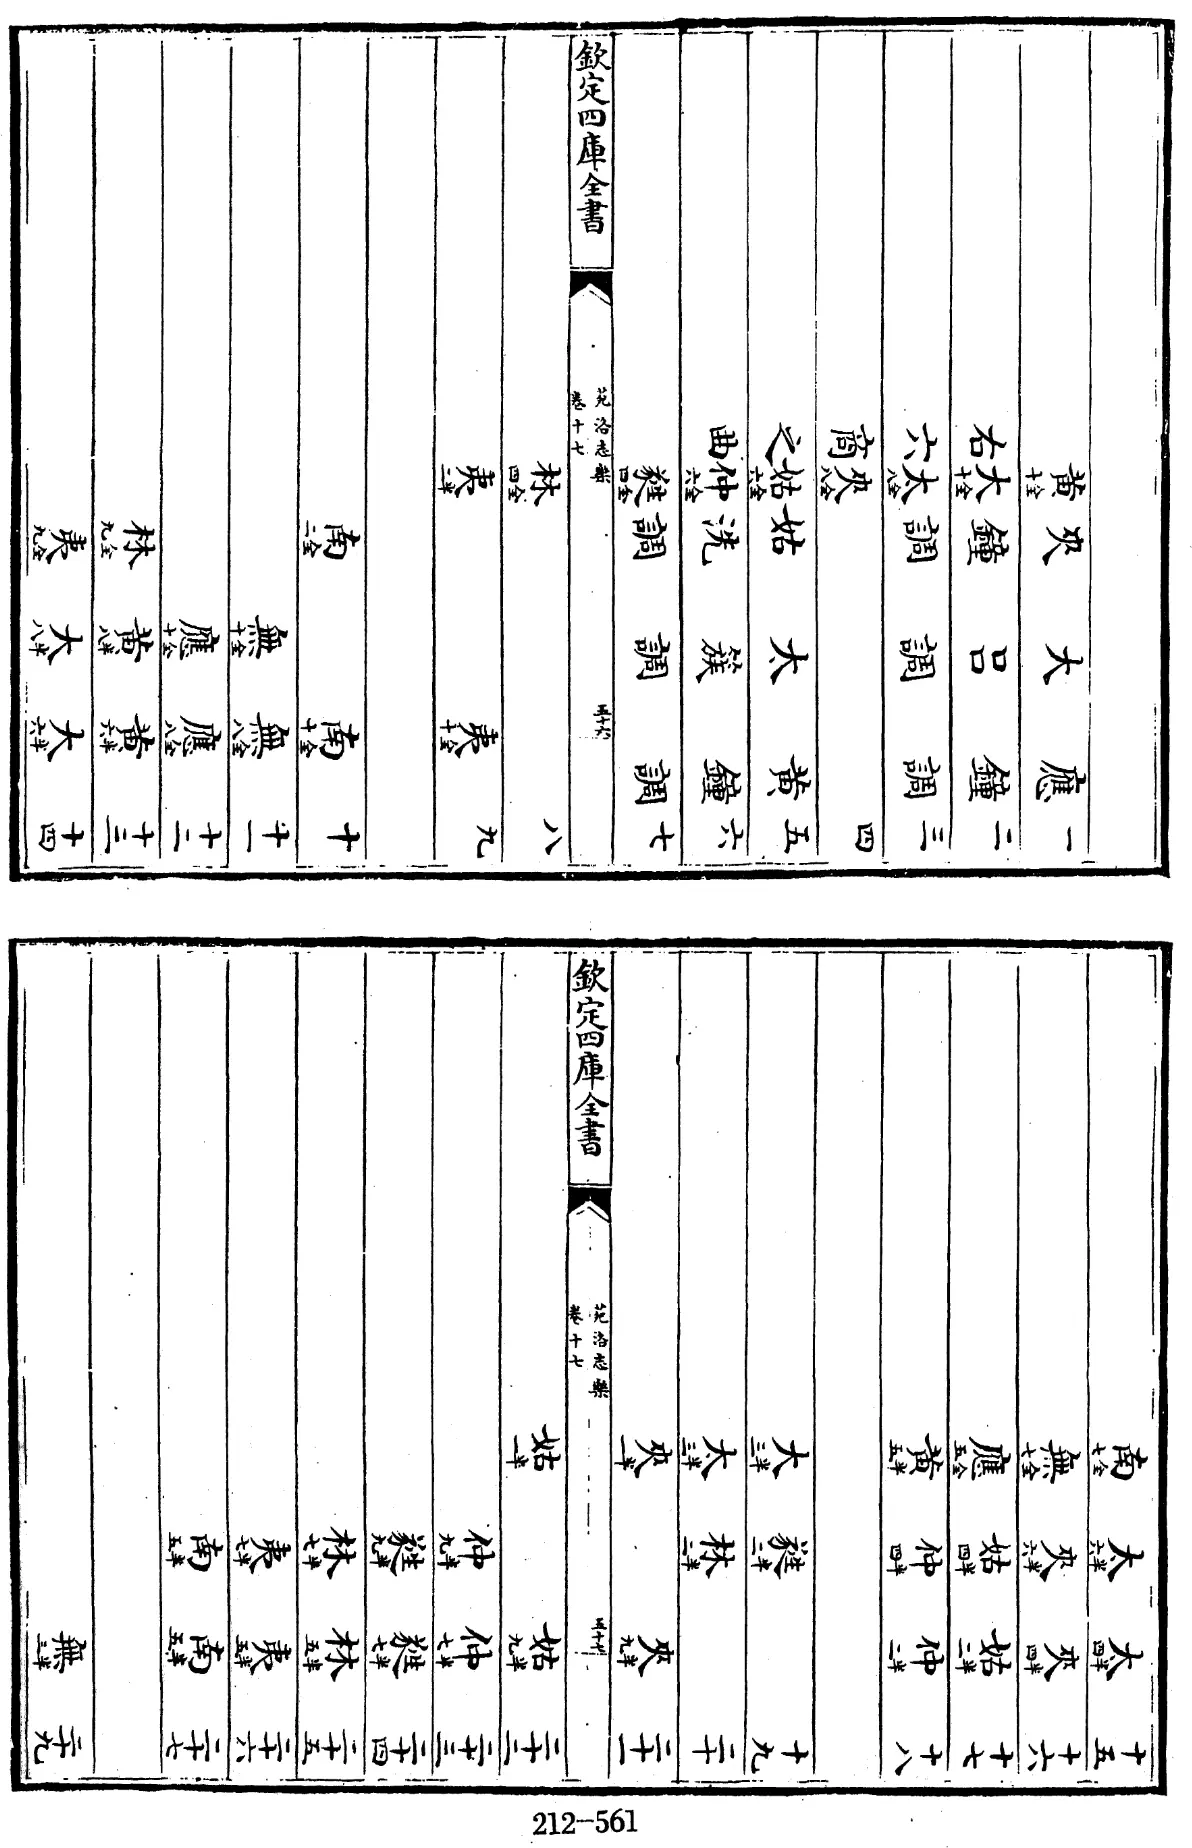 黃十全 夾 大 應 一
右大十全 鐘 吕 鐘 二
六太八全 調 調 調 三
商夾八全 四
之姑六全 姑 太 黃 五
曲仲六全 洗 簇 鐘 六
蕤四全 調 調 調 七
欽定四庫全書
苑洛志樂
卷十七
五十六
林四全 八
夷二半 夷十全 九
南二全 南十全 十
無十全 無八全 十一
應十全 應八全 十二
林九全 黃八半 黃六半 十三
夷九全 大八半 大六半 十四
南七全 太六半 太四半 十五
無七全 夾六半 夾四半 十六
應五全 姑四半 姑二半 十七
黃五半 仲四半 仲二半 十八
大三半 蕤二半 十九
太三半 林二半 二十
夾一半 夾九半 二十一
欽定四庫全書
苑洛志樂
卷十七
五十七
姑一半 姑九半 二十二
仲九半 仲七半 二十三
蕤九半 蕤七半 二十四
林七半 林五半 二十五
夷七半 夷五半 二十六
南五半 南五半 二十七
無三半 二十九
212-561